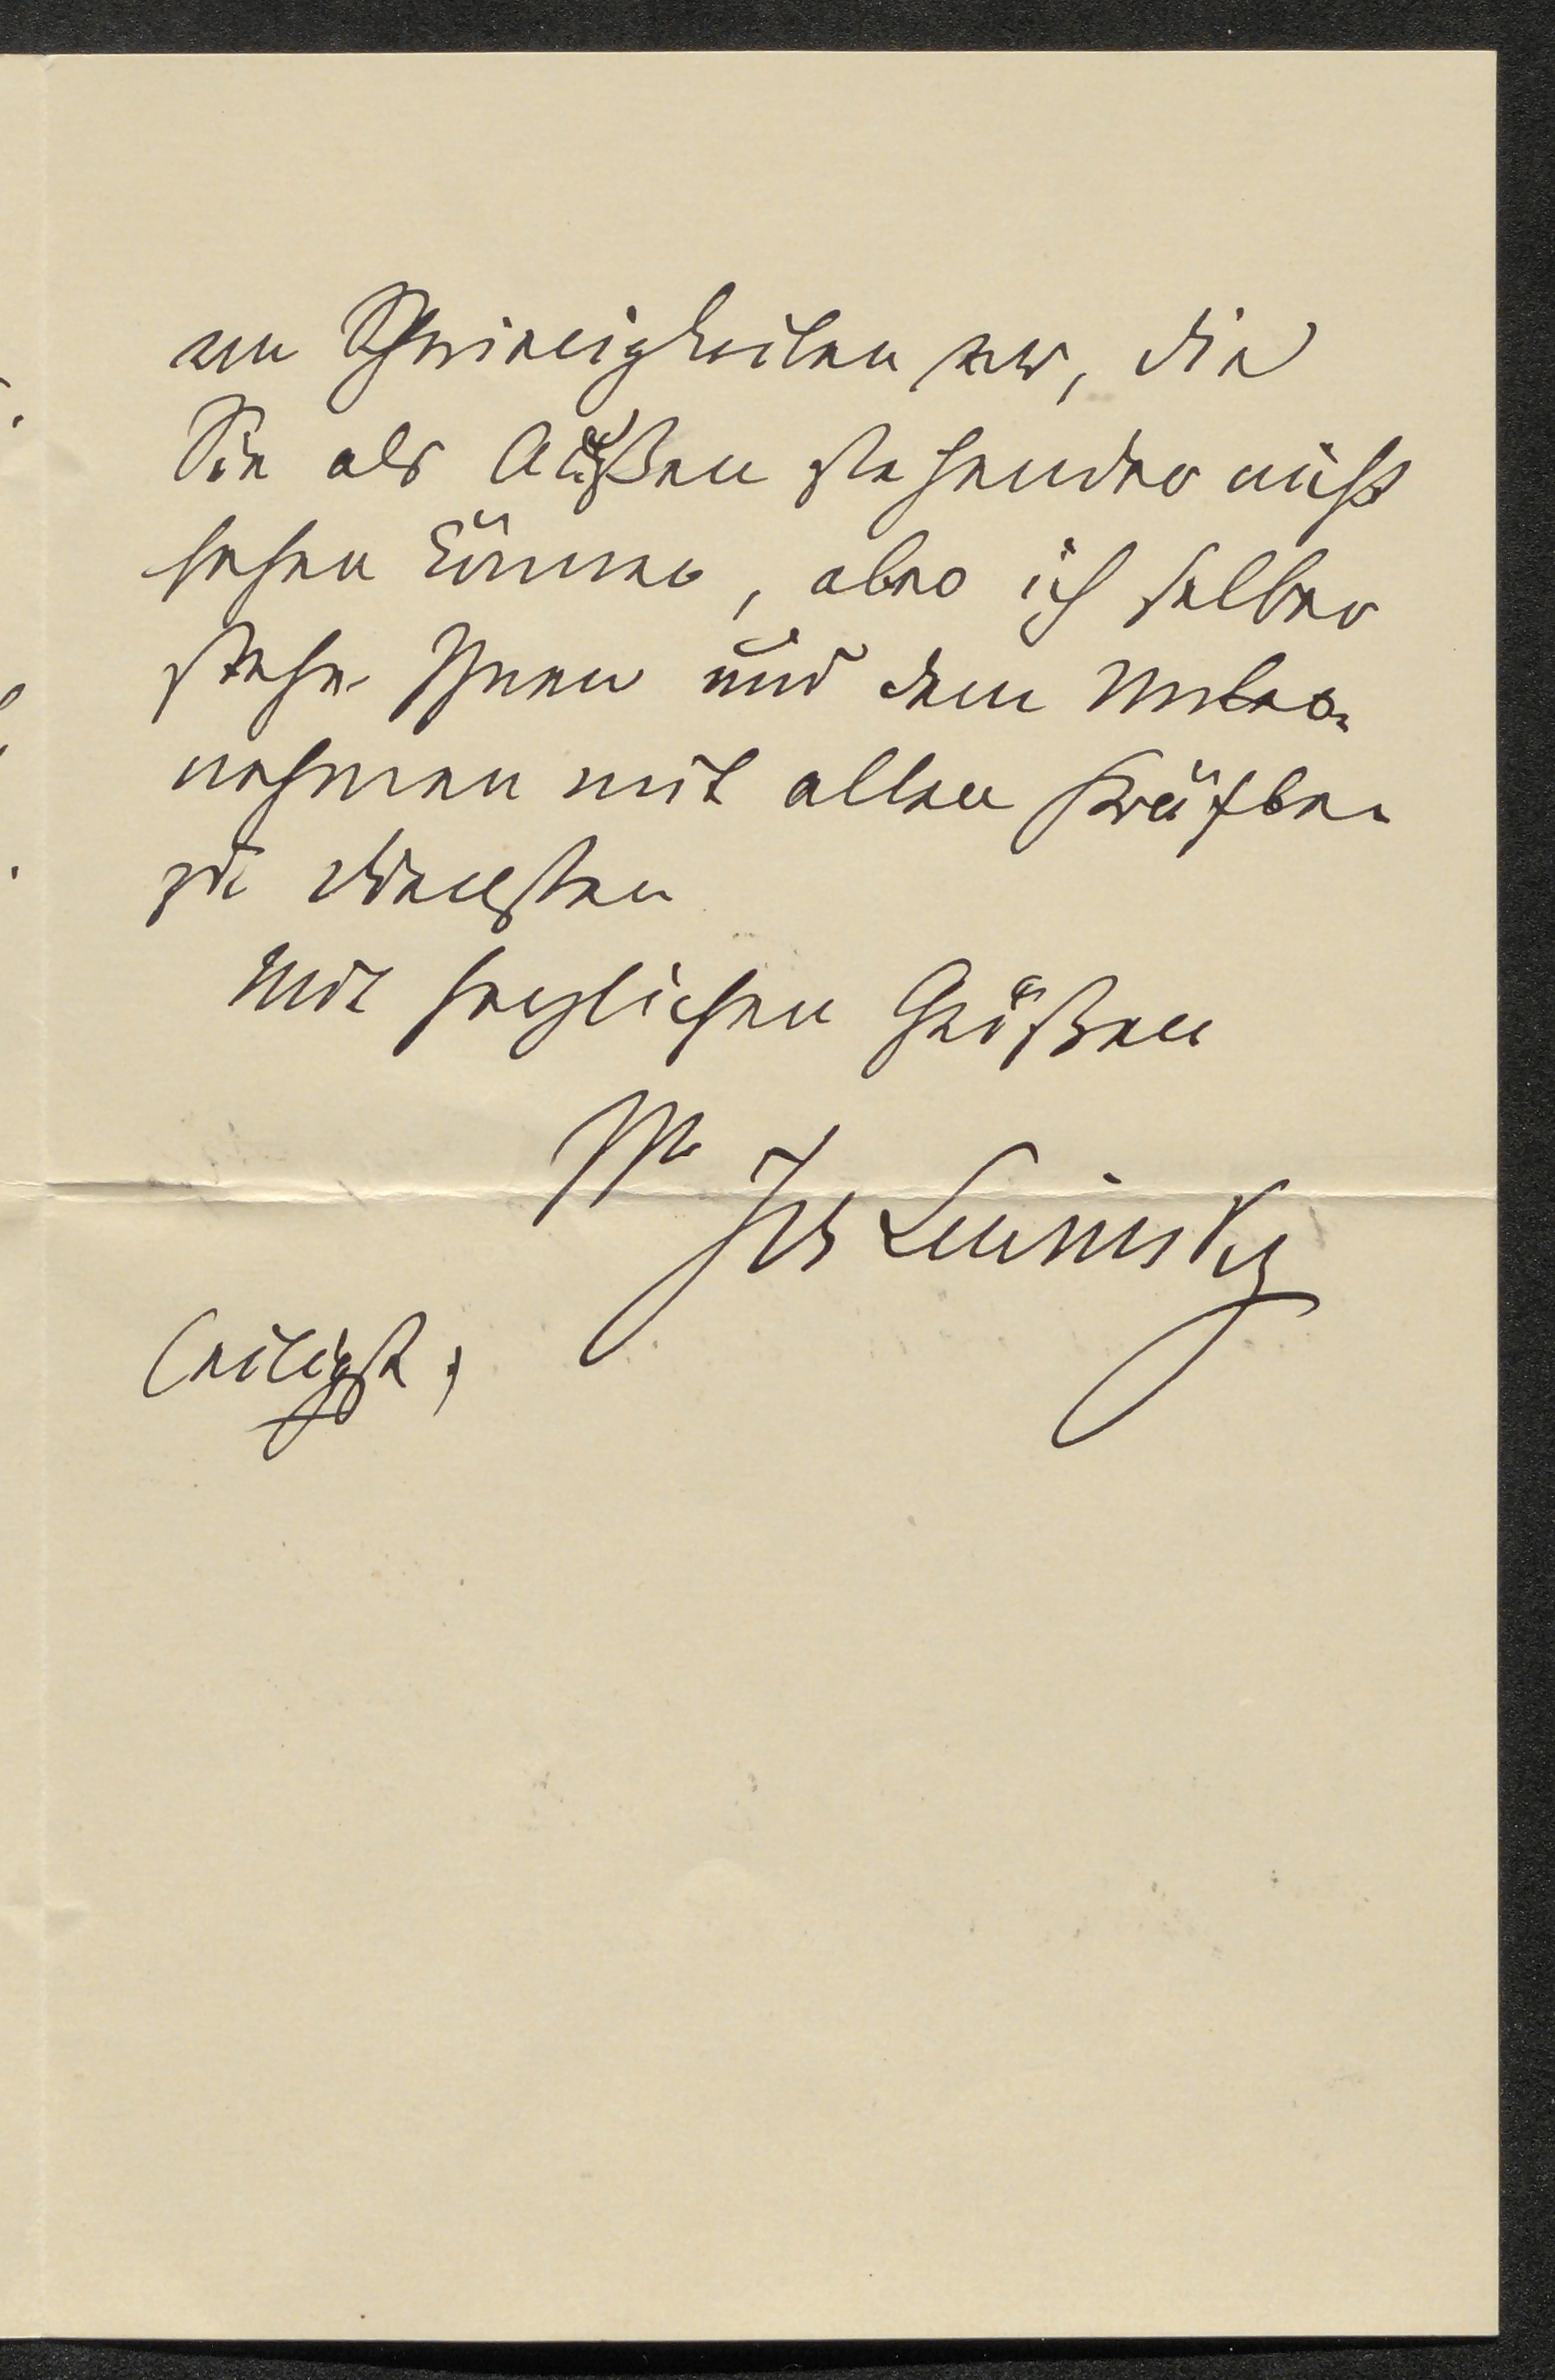 en Schwierigkeiten ew, die
Sie als Außen stehender nicht
sehen können, aber ich selber
stehe Ihnen und dem Unter-
nehmen mit allen Kräften
zu Diensten
Mit herzlichen Grüßen
Ihr
Jos Lewinsky
Eiligst,